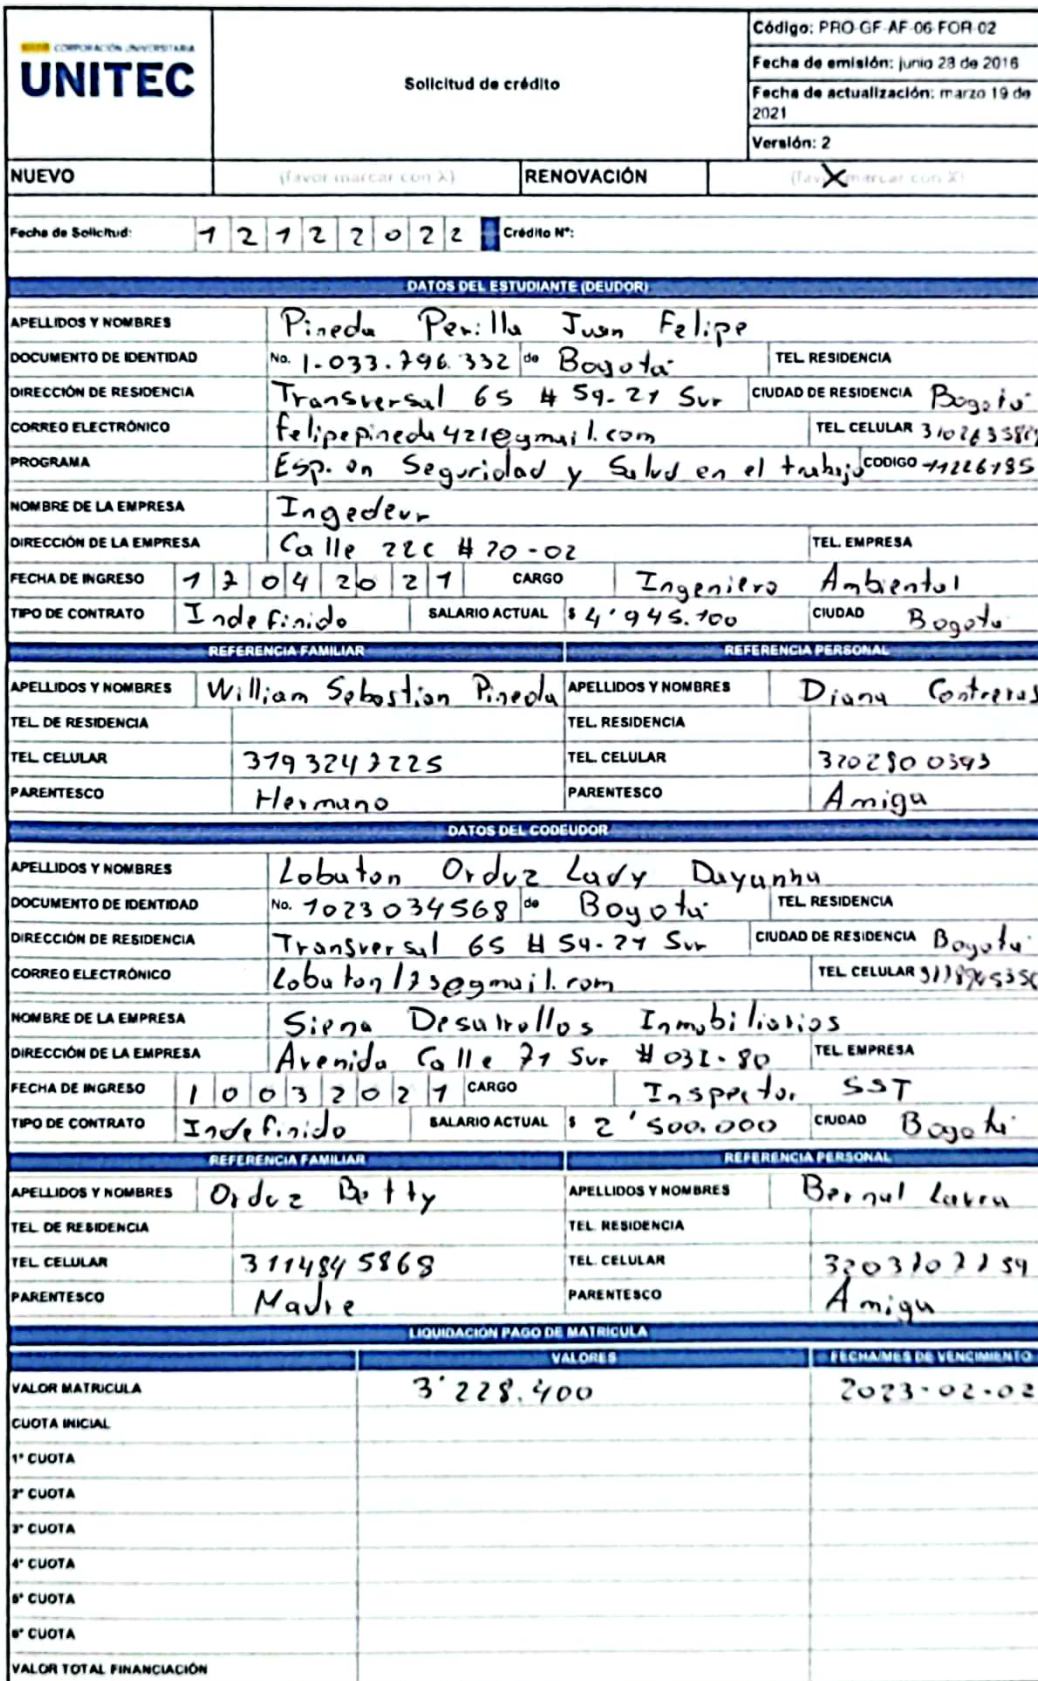 CORPORACIÓN UNIVERSITARIA
UNITEC
Solicitud de crédito
Código: PRO-GF-AF-06-FOR-02
Fecha de emisión: junio 28 de 2016
Fecha de actualización: marzo 19 de 2021
Versión: 2
NUEVO (favor marcar con X) RENOVACIÓN (favor marcar con X) X
Fecha de Solicitud: 1 2 1 2 2 0 2 2 Crédito N°:
DATOS DEL ESTUDIANTE (DEUDOR)
APELLIDOS Y NOMBRES Pineda Perilla Juan Felipe
DOCUMENTO DE IDENTIDAD No. 1.033.796.332 de Bogotá TEL. RESIDENCIA
DIRECCIÓN DE RESIDENCIA Transversal 65 # 59-21 Sur CIUDAD DE RESIDENCIA Bogotá
CORREO ELECTRÓNICO felipepineda421@gmail.com TEL. CELULAR
PROGRAMA Esp. en Seguridad y Salud en el trabajo CODIGO 11226185
NOMBRE DE LA EMPRESA Ingedeur
DIRECCIÓN DE LA EMPRESA Calle 22C # 20-02 TEL. EMPRESA
FECHA DE INGRESO 1 7 0 4 2 0 2 1 CARGO Ingeniero Ambiental
TIPO DE CONTRATO Indefinido SALARIO ACTUAL $ 4'945.100 CIUDAD Bogotá
REFERENCIA FAMILIAR REFERENCIA PERSONAL
APELLIDOS Y NOMBRES William Sebastian Pineda APELLIDOS Y NOMBRES Diana Contreras
TEL. DE RESIDENCIA TEL. RESIDENCIA
TEL. CELULAR 3193247225 TEL. CELULAR
PARENTESCO Hermano PARENTESCO Amiga
DATOS DEL CODEUDOR
APELLIDOS Y NOMBRES Lobaton Orduz Lady Dayanna
DOCUMENTO DE IDENTIDAD No. 1023034568 de Bogotá TEL. RESIDENCIA
DIRECCIÓN DE RESIDENCIA Transversal 65 # 59-21 Sur CIUDAD DE RESIDENCIA Bogotá
CORREO ELECTRÓNICO TEL. CELULAR
NOMBRE DE LA EMPRESA Siena Desarrollos Inmobiliarios
DIRECCIÓN DE LA EMPRESA Avenida Calle 71 Sur # 03I-80 TEL. EMPRESA
FECHA DE INGRESO 1 0 0 3 2 0 2 1 CARGO Inspector SST
TIPO DE CONTRATO Indefinido SALARIO ACTUAL $ 2'500.000 CIUDAD Bogotá
REFERENCIA FAMILIAR REFERENCIA PERSONAL
APELLIDOS Y NOMBRES Orduz Betty APELLIDOS Y NOMBRES Bernal Laura
TEL. DE RESIDENCIA TEL. RESIDENCIA
TEL. CELULAR 3114845868 TEL. CELULAR
PARENTESCO Madre PARENTESCO Amiga
LIQUIDACIÓN PAGO DE MATRICULA
VALORES FECHA/MES DE VENCIMIENTO
VALOR MATRICULA 3'228.400 2023-02-02
CUOTA INICIAL
1° CUOTA
2° CUOTA
3° CUOTA
4° CUOTA
5° CUOTA
6° CUOTA
VALOR TOTAL FINANCIACIÓN